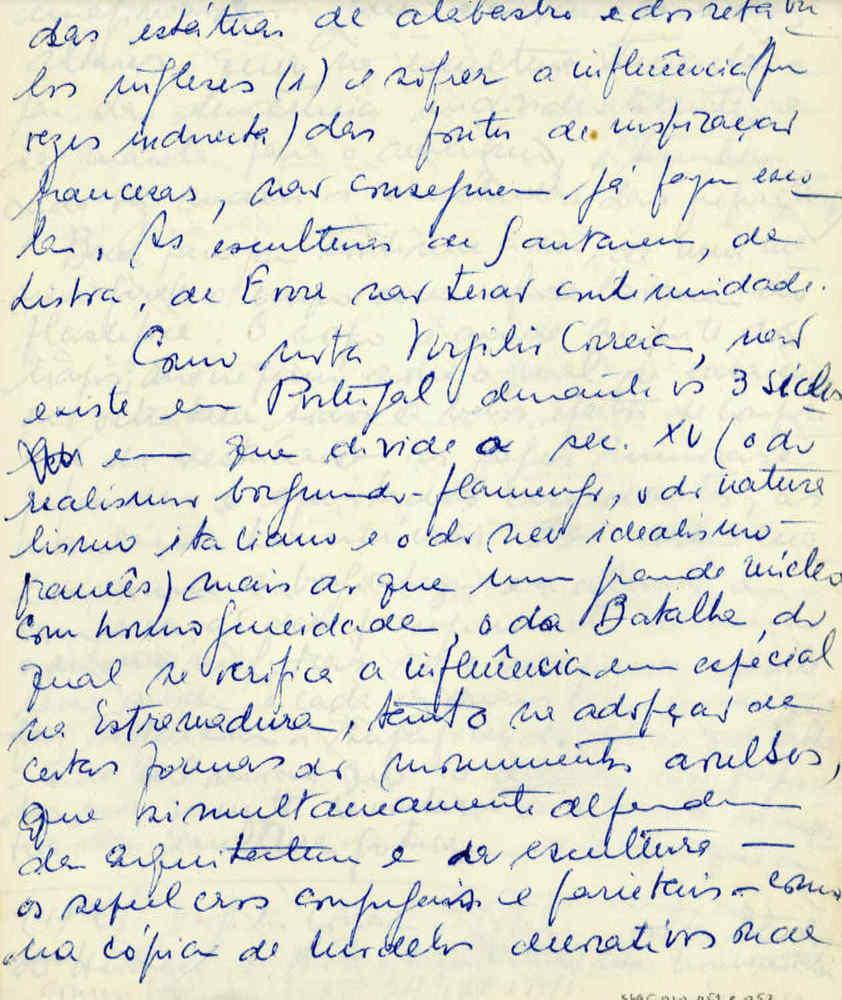 das estátuas de alabastro e dos retábu
los ingleses (1) e sofrer a influência (por
vezes indirecta) das fontes de inspiração
francesas, não conseguem já fazer esco
las. As esculturas de Santarém, de
Lisboa, de Évora não terão continuidade.
Como nota Vergílio Correia, não
existe em Portugal durante os 3 ciclos
em que divide o séc. XV (o do
realismo borgundo-flamengo, o do natura
lismo italiano e o do neo idealismo
francês) mais do que um grande núcleo
com homogeneidade, o da Batalha, do
qual se verifica a influência em especial
na Estremadura, tanto na adopção de
certas formas de monumentos avulsos,
que simultaneamente dependem
da arquitectura e da escultura —
os sepulcros conjugais e parietais — como
na cópia de modelos decorativos onde